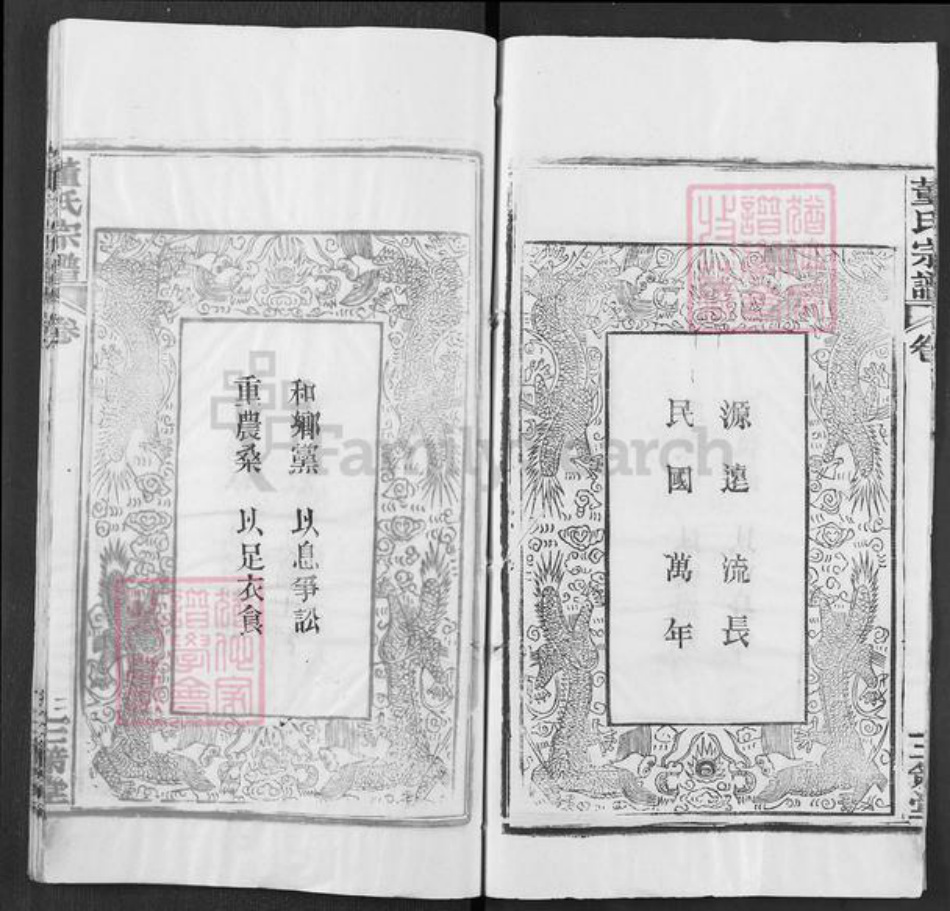 董氏宗譜
卷
源遠流長
民國萬年
和鄉黨 以息爭訟
重農桑 以足衣食
董氏宗譜
卷
三策堂
FamilySearch